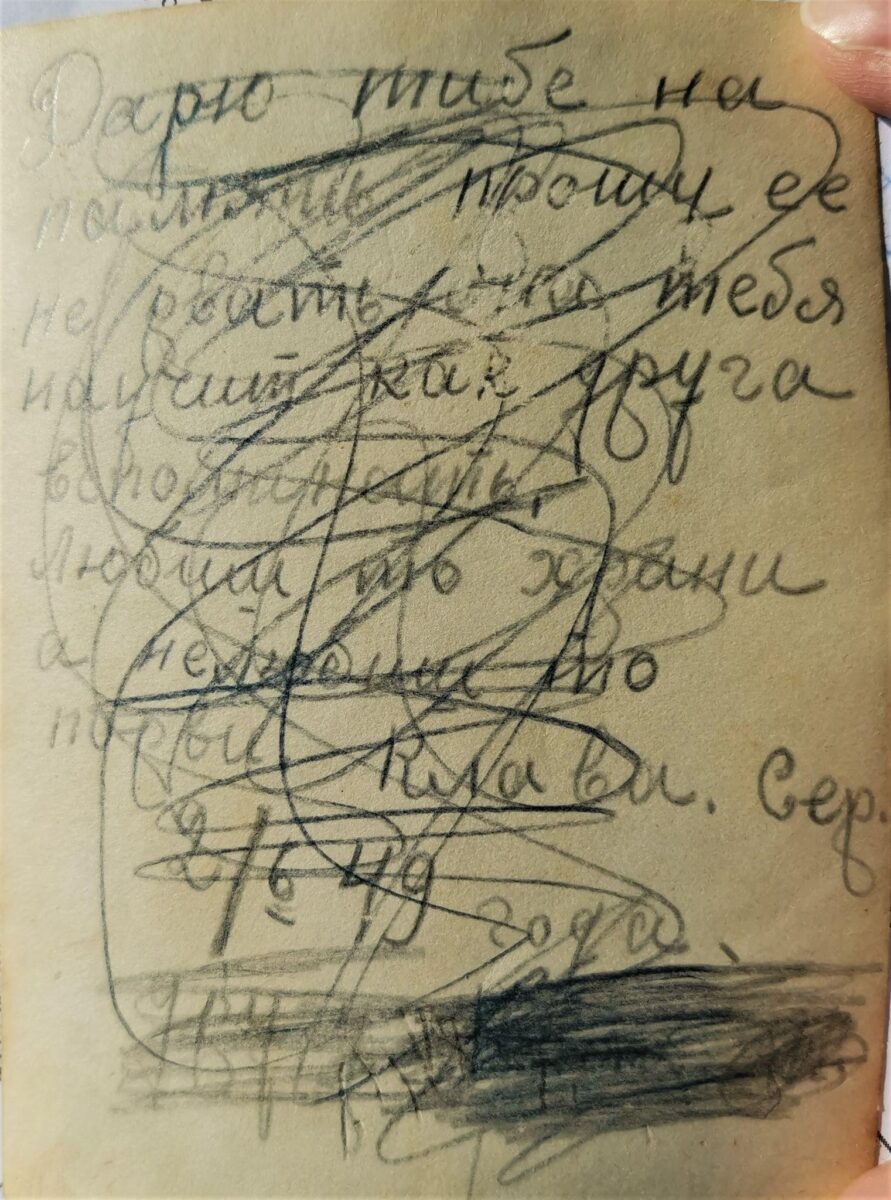 Дарю тибе на
память прошу ее
не рвать она тебя
научит как друга
вспоминать,
любиш то храни
а нелюбиш то
порви Клава. Сер.
2/6 49
года